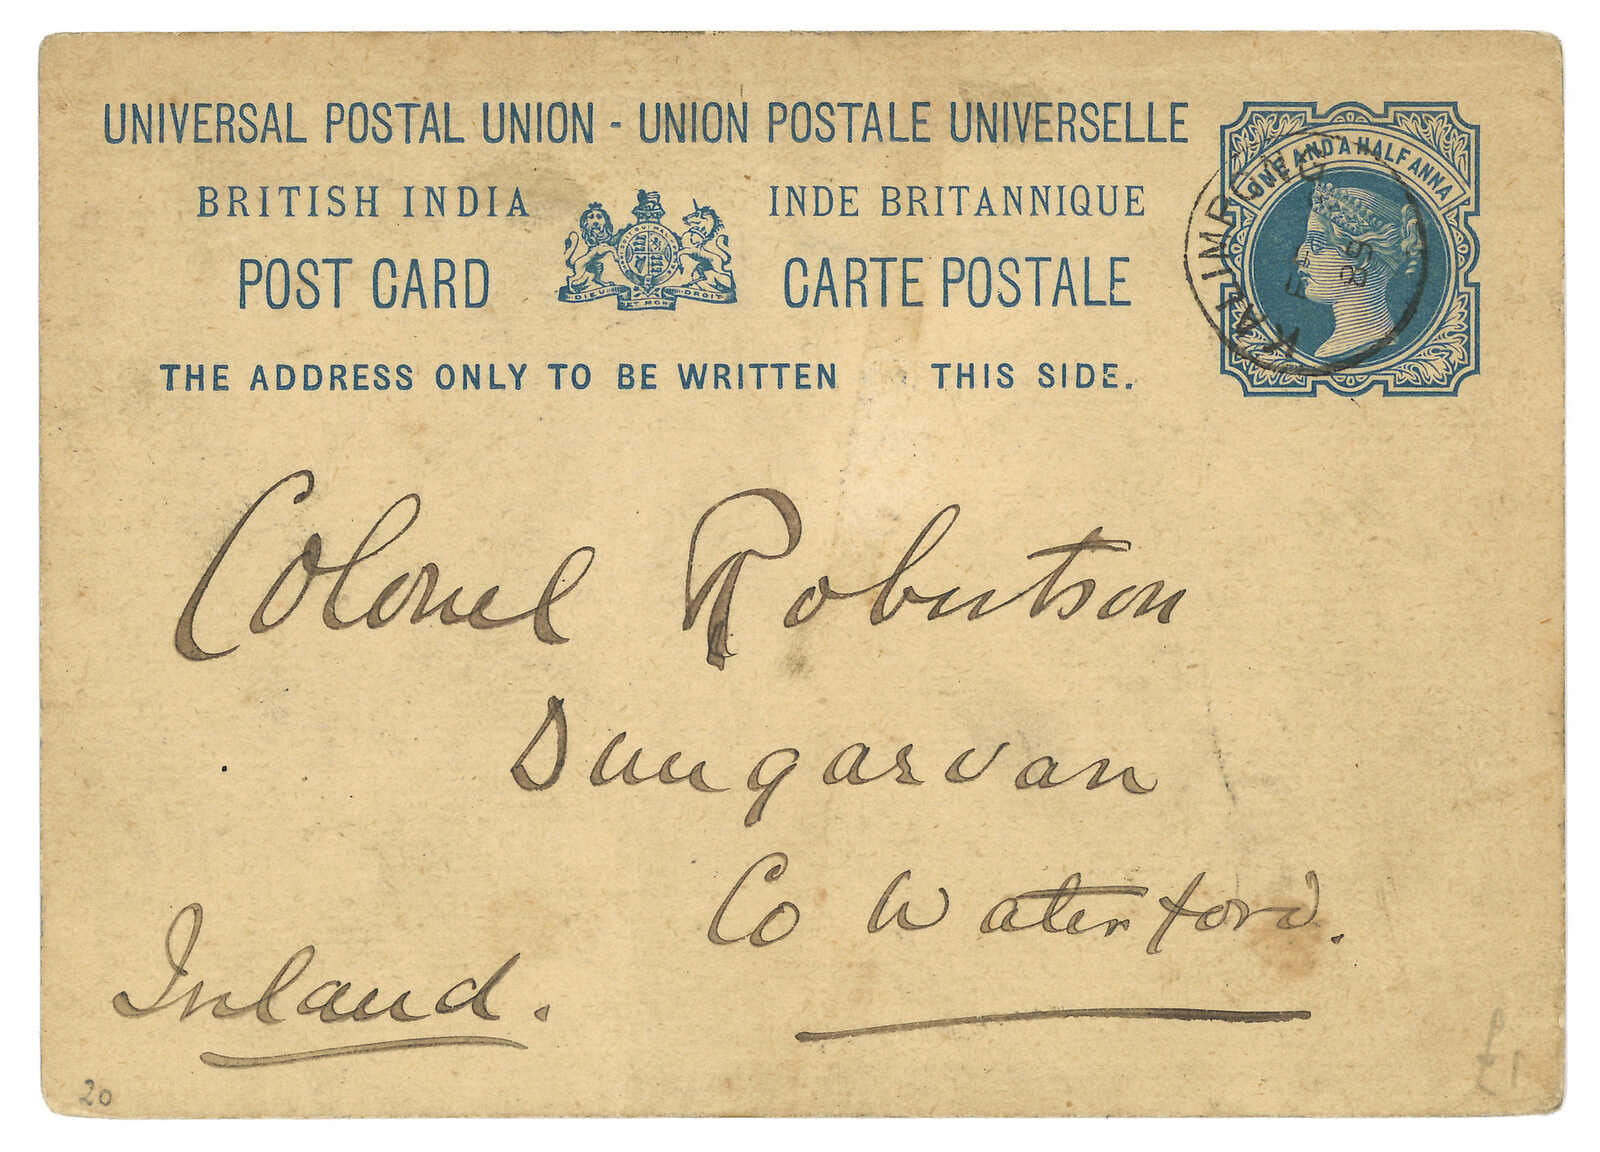 UNIVERSAL POSTAL UNION - UNION POSTALE UNIVERSELLE
BRITISH INDIA INDE BRITANNIQUE
POST CARD CARTE POSTALE
DIEU ET MON DROIT
THE ADDRESS ONLY TO BE WRITTEN THIS SIDE.
ONE AND A HALF ANNA
KALIMPONG
Colonel Robertson
Dungarvan
Co Waterford.
Inland.
20